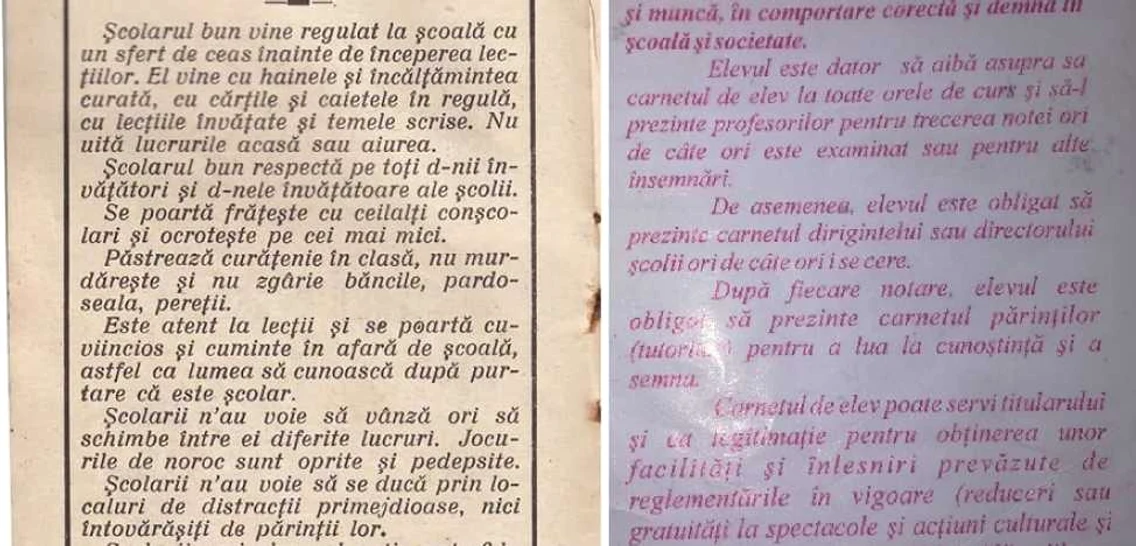 Școlarul bun vine regulat la școală cu
un sfert de ceas înainte de începerea lec-
țiilor. El vine cu hainele și încălțămintea
curată, cu cărțile și caietele în regulă,
cu lecțiile învățate și temele scrise. Nu
uită lucrurile acasă sau aiurea.
Școlarul bun respectă pe toți d-nii în-
vățători și d-nele învățătoare ale școlii.
Se poartă frățește cu ceilalți conșco-
lari și ocrotește pe cei mai mici.
Păstrează curățenie în clasă, nu mur-
dărește și nu zgârie băncile, pardo-
seala, pereții.
Este atent la lecții și se poartă cu-
viincios și cuminte în afară de școală,
astfel ca lumea să cunoască după pur-
tare că este școlar.
Școlarii n'au voie să vânză ori să
schimbe între ei diferite lucruri. Jocu-
rile de noroc sunt oprite și pedepsite.
Școlarii n'au voie să se ducă prin lo-
caluri de distracții primejdioase, nici
întovărășiți de părinții lor.
și muncă, în comportare corectă și demnă în
școală și societate.
Elevul este dator să aibă asupra sa
carnetul de elev la toate orele de curs și să-l
prezinte profesorilor pentru trecerea notei ori
de câte ori este examinat sau pentru alte
însemnări.
De asemenea, elevul este obligat să
prezinte carnetul dirigintelui sau directorului
școlii ori de câte ori i se cere.
După fiecare notare, elevul este
obligat să prezinte carnetul părinților
pentru a lua la cunoștință și a
semna.
Carnetul de elev poate servi titularului
și ca legitimație pentru obținerea unor
facilități și înlesniri prevăzute de
reglementările în vigoare (reduceri sau
gratuități la spectacole și acțiuni culturale și